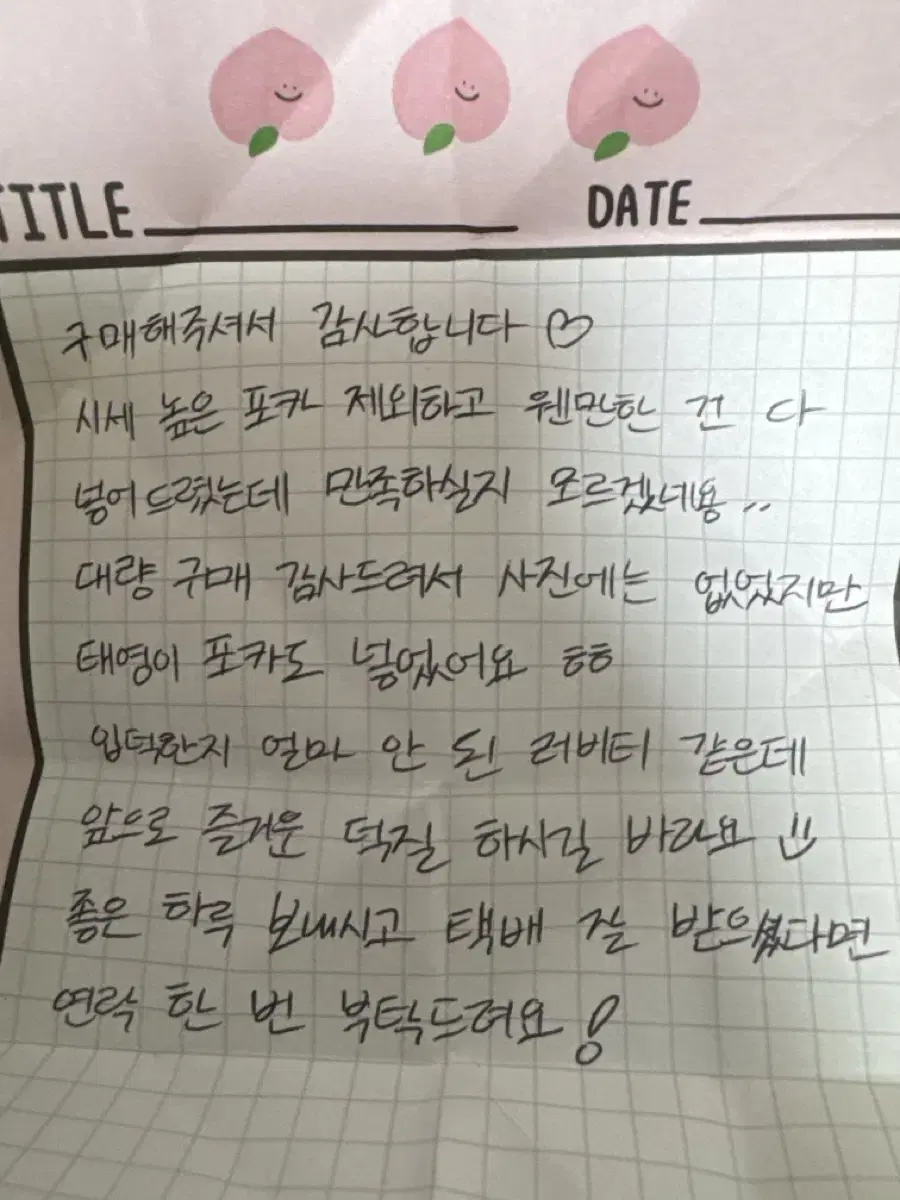 TITLE DATE
구매해주셔서 감사합니다 ♡
시세 높은 포카 제외하고 웬만한 건 다
넣어드렸는데 만족하실지 모르겠네용..
대량 구매 감사드려서 사진에는 없었지만
태영이 포카도 넣었어요 ㅎㅎ
입덕한지 얼마 안 된 러비티 같은데
앞으로 즐거운 덕질 하시길 바라요 :)
좋은 하루 보내시고 택배 잘 받으셨다면
연락 한 번 부탁드려요!